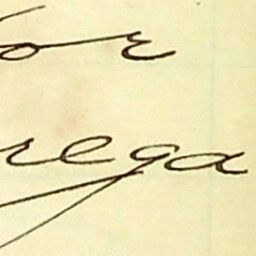 or
rega